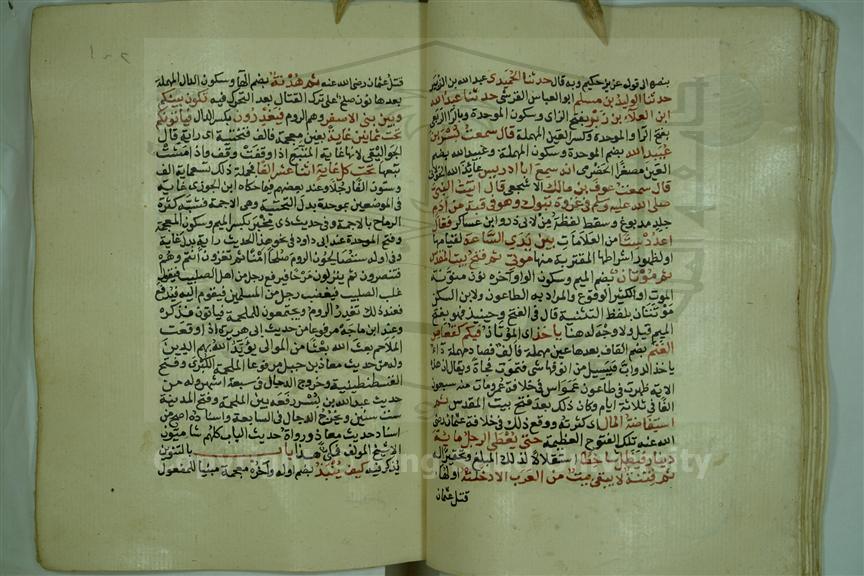 بضم الى قوله عزيز حكيم وبه قال حدثنا الحميدى عبد الله بن الزبير
حدثنا الوليد بن مسلم ابو العباس القرشى حدثنا عبد الله
ابن العلاء بن زبر بفتح الزاى وسكون الموحدة وبالراء الربعى
بفتح الراء والموحدة وكسر العين المهملة قال سمعت بسر بن
عبيد الله بضم الموحدة وسكون المهملة وعبيد الله بضم
العين مصغرا الحضرمى انه سمع ابا ادريس عائذ الله الخولانى
قال سمعت عوف بن مالك الاشجعى قال اتيت النبى
صلى الله عليه وسلم فى غزوة تبوك وهو فى قبة من ادم
جلد مدبوغ وسقط لفظة من لابى ذر وابن عساكر فقال
اعدد ستا من العلامات بين يدى الساعة لقيامها
او لظهور اشراطها المقتربة منها موتى ثم فتح بيت المقدس
ثم موتان بضم الميم وسكون الواو اخره نون منونة
الموت او الكثير الوقوع والمراد به الطاعون ولابن السكن
موتتان بلفظ التثنية قال فى الفتح وحينئذ فهو بفتح
الميم قيل ولا وجه له هنا ياخذ اى الموتان فيكم كقعاص
الغنم بضم القاف بعدها عين مهملة فالف فصاد مهملة داء
ياخذ الدواب فيسيل من انوفها شى فتموت فجاة ويقال ان هذه
الاية ظهرت فى طاعون عمواس فى خلافة عمر ومات منه سبعون
الفا فى ثلاثة ايام وكان ذلك بعد فتح بيت المقدس ثم
استفاضة المال كثرته ووقع ذلك فى خلافة عثمان رضى
الله عنه تلك الفتوح العظيمة حتى يعطى الرجل مائة
دينار فيظل ساخطا استقلالا لذلك المبلغ وتحقيرا له
ثم فتنة لا يبقى بيت من العرب الا دخلته اولها
قتل عثمان
قتل عثمان رضى الله عنه ثم هدنة بضم الهاء وسكون الدال المهملة
بعدها نون صلح على ترك القتال بعد التحرك فيه تكون بينكم
وبين بنى الاصفر وهم الروم فيغدرون بكسر الدال فياتونكم
تحت ثمانين غاية بغين معجمة فالف فتحتية اى راية قال
الجواليقى لانها غاية المتبع اذا وقفت وقف واذا مشت
تبعها تحت كل غاية اثنا عشر الفا فجملة ذلك تسعماية الف
وستون الفا رجلا وعند بعضهم فيما حكاه ابن الجوزى غابة
فى الموضعين بموحدة بدل التحتية وهى الاجمة فشبه كثرة
الرماح بالاجمة وفى حديث ذى مخبر بكسر الميم وسكون المعجمة
وفتح الموحدة عند ابى داود فى نحو هذا الحديث راية بدل غاية
وفى اوله ستصالحون الروم صلحا امنا ثم تغزون انتم وهم
فتنصرون ثم ينزلون مرجا فيرفع رجل من اهل الصليب فيقول
غلب الصليب فيغضب رجل من المسلمين فيقوم اليه فيدفع
فعند ذلك تغدر الروم ويجتمعون للملحمة فياتون فذكره
وعند ابن ماجه مرفوعا من حديث ابى هريرة اذا وقعت
الملاحم بعث الله بعثا من الموالى يويد الله بهم الدين
وله من حديث معاذ بن جبل مرفوعا الملحمة الكبرى وفتح
القسطنطينية وخروج الدجال فى سبعة اشهر وله من
حديث عبد الله بن بسر رفعه بين الملحمة وفتح المدينة
ست سنين ويخرج الدجال فى السابعة واسناده اصح من
اسناد حديث معاذ ورواة حديث الباب كلهم شاميون
الا شيخ المولف فمكى هذا باب بالتنوين
يذكر فيه كيف ينبذ بضم اوله واخره معجمة مبنيا للمفعول